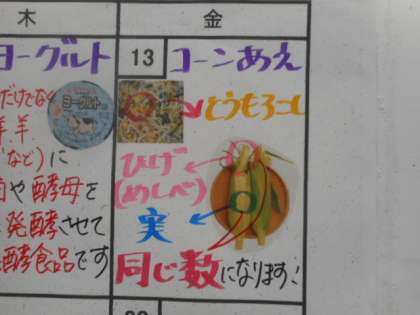 木
金
ヨーグルト
だけでなく
羊
など)に
や酵母を
発酵させて
酵食品です
ヨーグルト
13
コーンあえ
とうもろこし
ひげ
(めしべ)
実
同じ数になります!